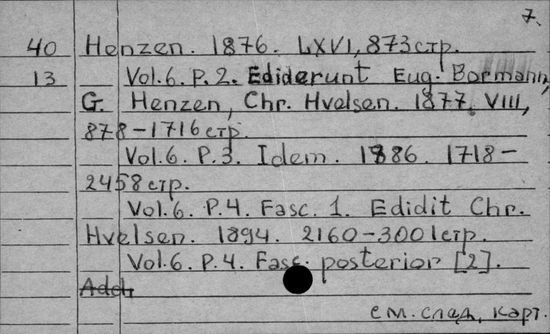 7.
40 Henzen. 1876. LXVI, 873стр.
13 Vol.6. P.2. Ediderunt Eug. Bormann,
G. Henzen, Chr. Hvelsen. 1877. VIII,
878-1716стр.
Vol.6. P.3. Idem. 1886. 1718-
2458стр.
Vol.6. P.4. Fasc. 1. Edidit Chr.
Hvelsen. 1894. 2160-3001стр.
Vol.6. P.4. Fasc. posterior [2].
см. след. карт.